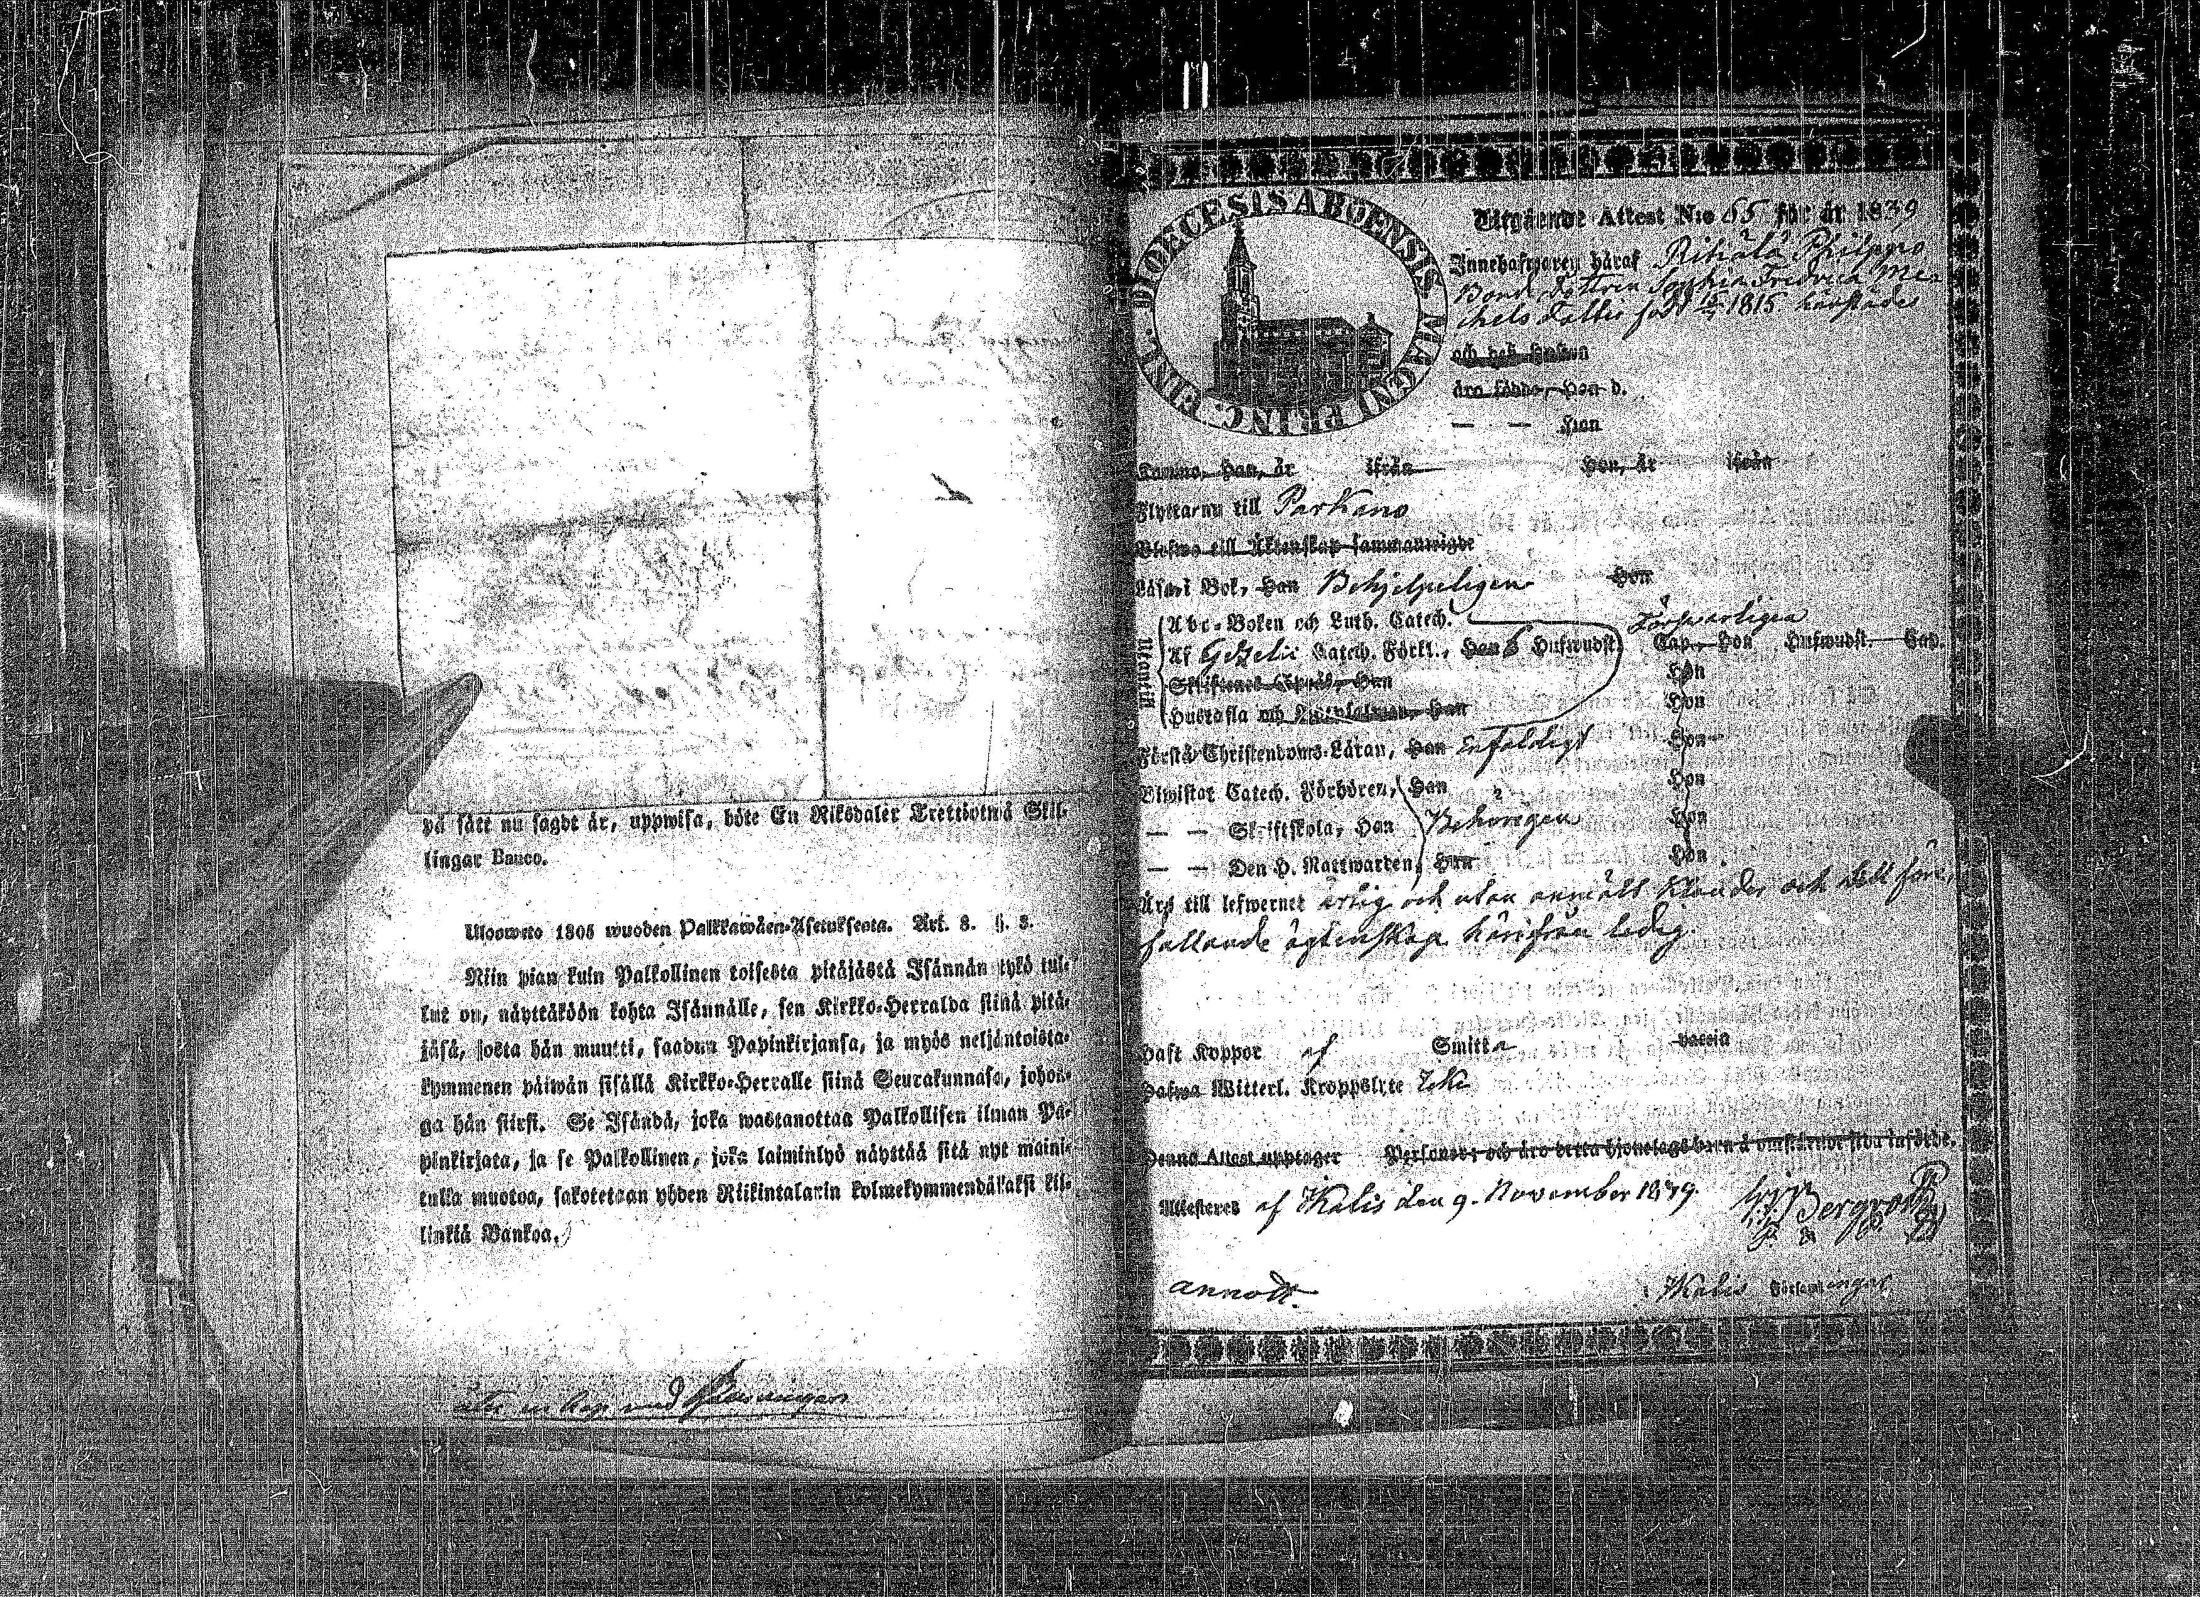 på sätt nu sagdt är, uppwisa, böte En Riksdaler Trettiotwå Skil-
lingar Banco.
Ulosweto 1805 wuoden Palkkawäen-Asetuksesta. Art. 8. §. 3.
Niin pian kuin Palkollinen toisesta pitäjästä Isännän tykö tul-
lut on, näyttäköön kohta Isännälle, sen Kirkko-Herralda siinä pitä-
jäsä, josta hän muutti, saadun Papinkirjansa, ja myös neljäntoista-
kymmenen päiwän sisällä Kirkko-Herralle siinä Seurakunnasa, johon-
ga hän siirsi. Se Isändä, joka wastanottaa Palkollisen ilman Pa-
pinkirjata, ja se Palkollinen, joka laiminlyö näyttää sitä nyt maini-
tulla muotoa, sakotetaan yhden Riikintalarin kolmekymmendäkaksi kil-
linkiä Bankoa.
DIOECESIS ABOENSIS MAGNI PRINC. FINL.
Utgående Attest N:o 55 för år 1839
Innehafwaren häraf Rihälä Philppo
Bond Dottren Sophia Fredrica Mi-
chels Dotter född 1815 härstädes
och dess Hustru
äro födde, Han d.
— — Hon
Komne, Han, år ifrån Hon, år ifrån
Flyttarnu till Parkano
Blefwo till Äktenskap sammanwigde
Läsa i Bok, Han Behjelpeligen Hon
Utantill
Abc-Boken och Luth. Catech. Förswarligen
Af Gezelii Catech. Förkl., Han 6 Hufwudst. Cap., Hon Hufwudst. Cap.
Skriftenes Han Hon
Hustafla och Han Hon
Förstå Christendoms-Läran, Han Enfaldigt Hon
Biwistat Catech. Förhören, Han Hon
— — Skriftskola, Han Behörigen Hon
— — Den H. Nattwarden, Han Hon
Äro till lefwernet ärlig och utan anmält klander och till före-
fallande ägtenskap härifrån ledig.
Haft Koppor af Smitta vaccin
Hafwa Witterl. Kroppslyte Icke
Denna Attest upptager Personer; och äro detta hjonelags barn å omstående sida införde.
Attesteres af Ikalis den 9. November 1839.
Bergroth
annott.
Ikalis Församlingar